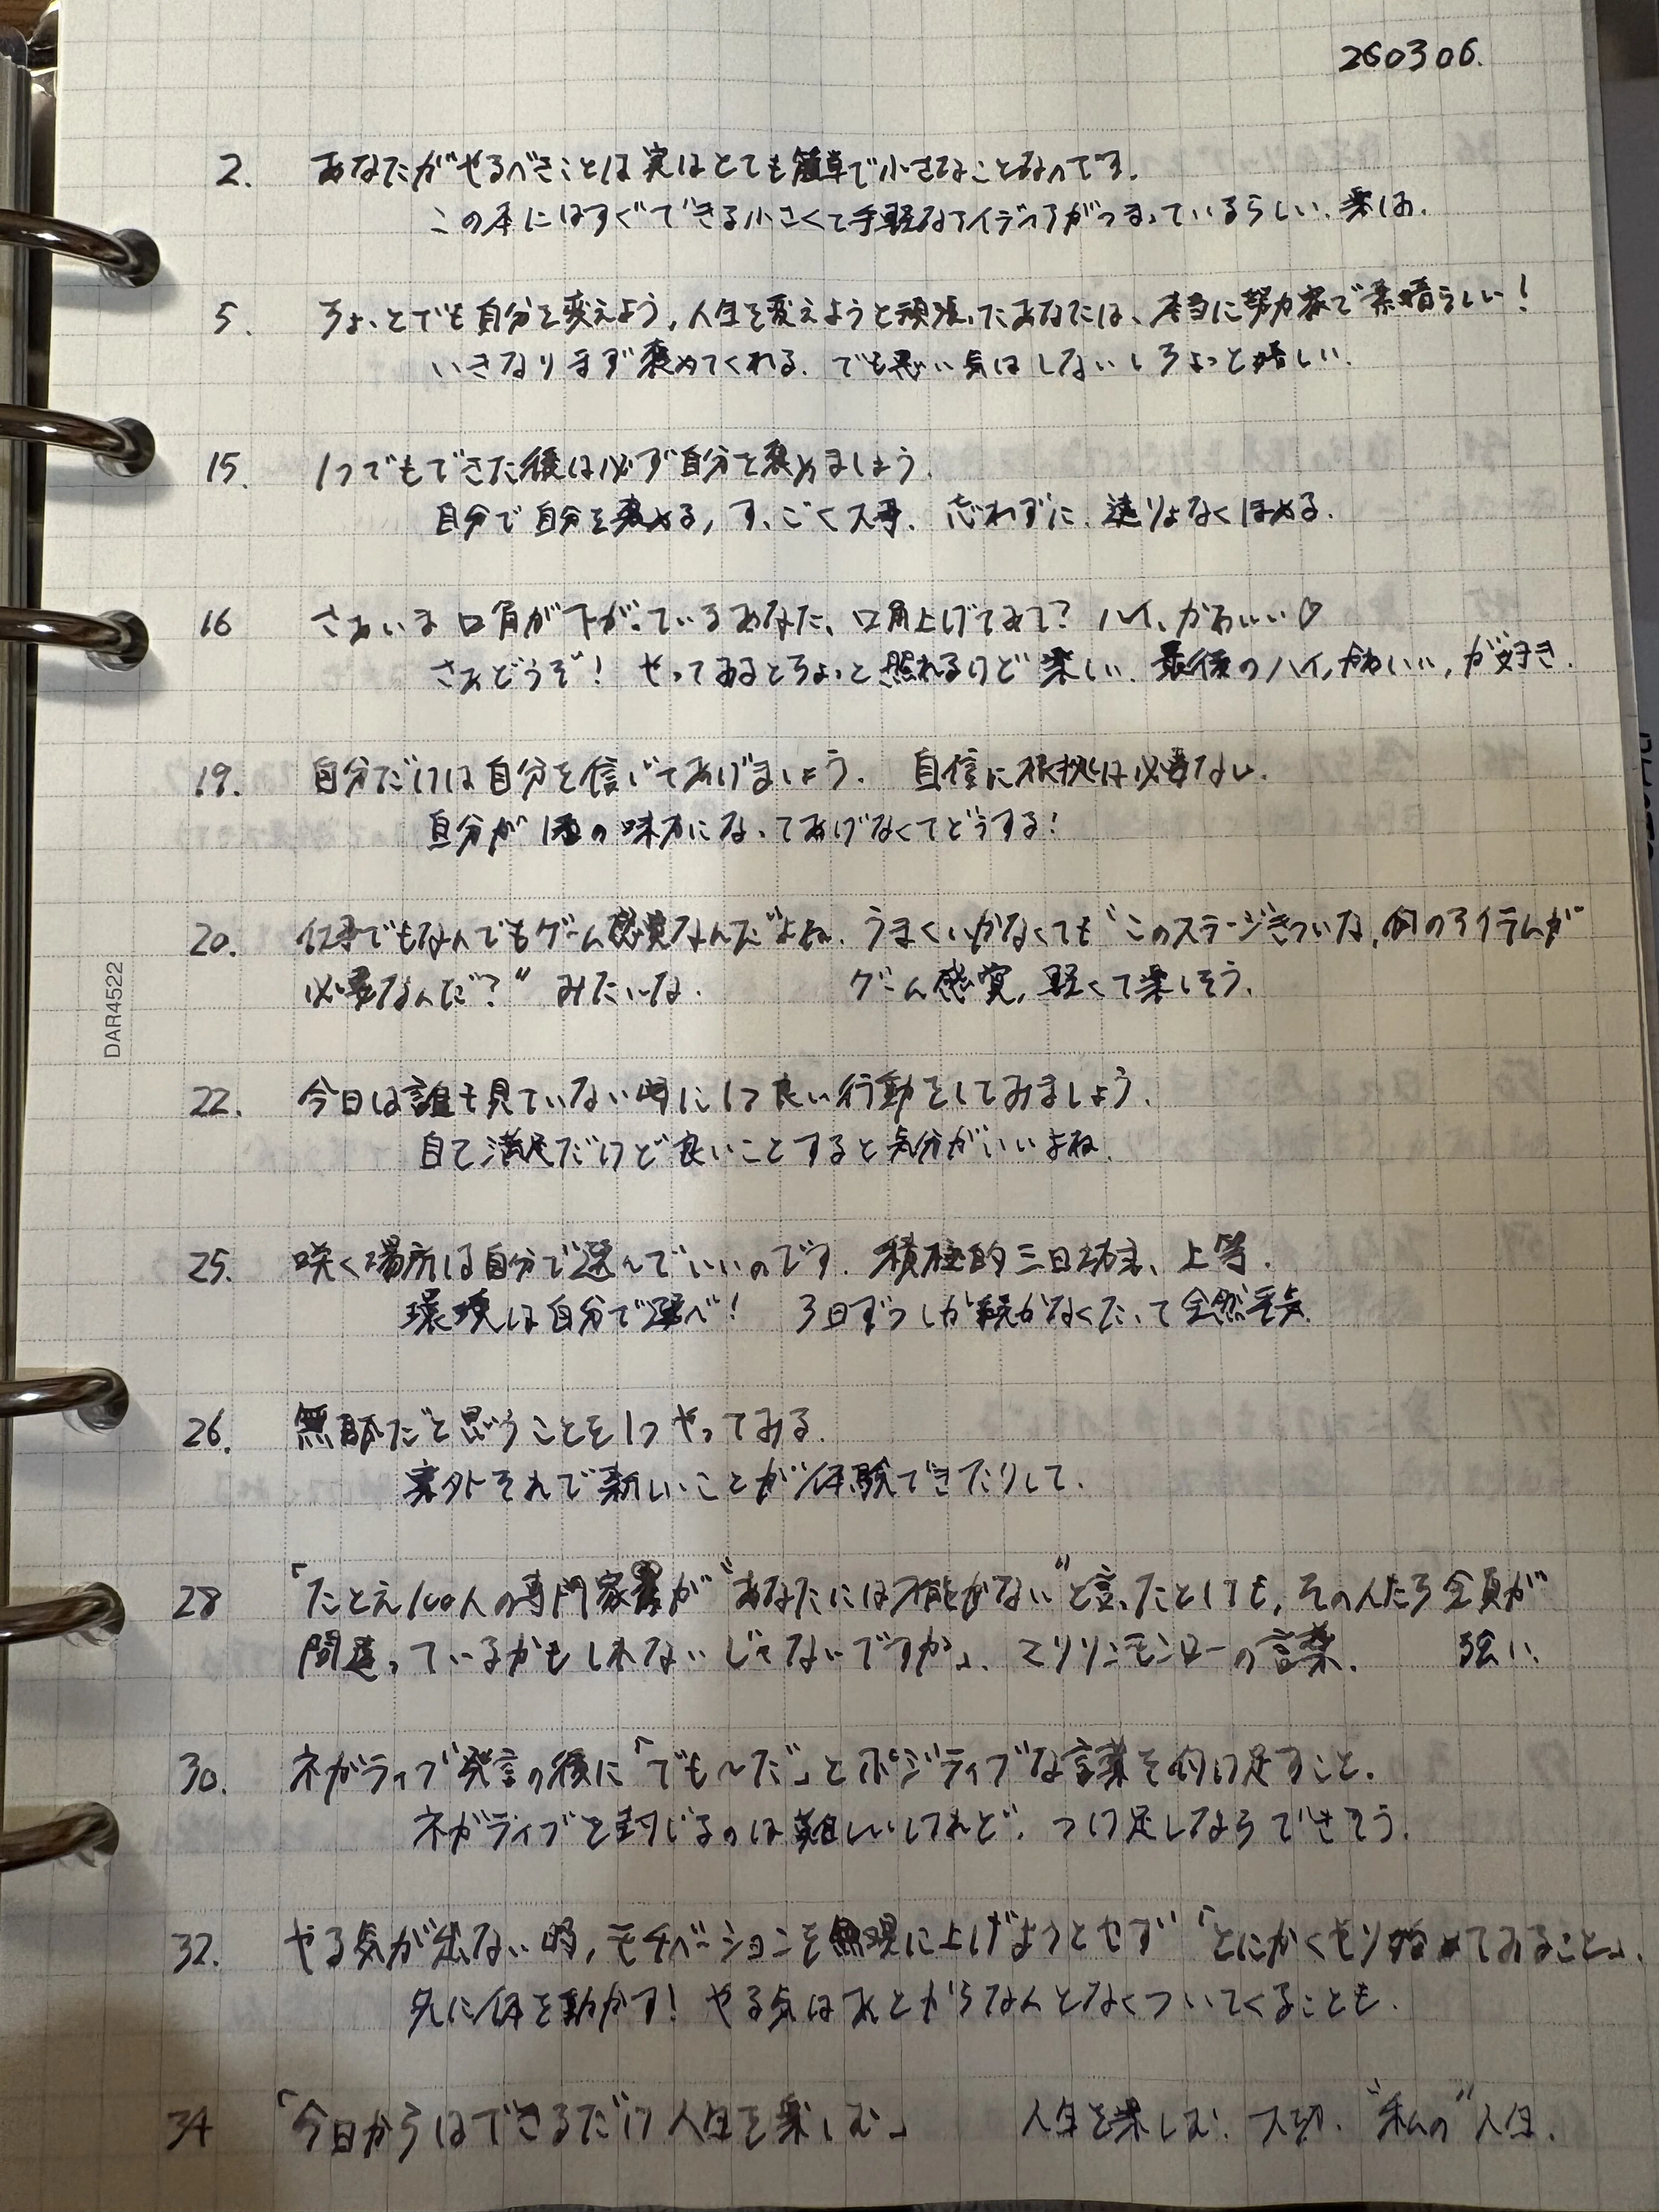 260306.
2. あなたがやるべきことは実はとても簡単で小さなことなのです.
この本にはすぐできる小さくて手軽なアイディアがつまっているらしい.
5. ちょっとでも自分を変えよう, 人生を変えようと頑張ったあなたは、本当に努力家で素晴らしい!
いきなりまず褒めてくれる. でも悪い気はしないしちょっと嬉しい.
15. 1つでもできた後は必ず自分を褒めましょう.
自分で自分を褒める, すっごく大事. 忘れずに. 遠りょなくほめる.
16 さあいま口角が下がっているあなた、口角上げてみて? ハイ、かわいい♡
さあどうぞ! やってみるとちょっと照れるけど楽しい. 最後のハイ, かわいい, が好き.
19. 自分だけは自分を信じてあげましょう. 自信に根拠は必要ない.
自分が1番の味方になってあげなくてどうする!
20. 仕事でもなんでもゲーム感覚なんだよね. うまくいかなくても“このステージきついな, 何のアイテムが
必要なんだ?” みたいな. ゲーム感覚, 軽くて楽しそう.
22. 今日は誰も見ていない時に1つ良い行動をしてみましょう.
自己満足だけど良いことすると気分がいいよね.
25. 咲く場所は自分で選んでいいのです. 積極的三日坊主、上等.
環境は自分で選べ! 3日ずつしか続かなくたって全然平気.
26. 無駄だと思うことを1つやってみる.
案外それで新しいことが体験できたりして.
28 「たとえ100人の専門家が“あなたには才能がない”と言ったとしても, その人たち全員が
間違っているかもしれないじゃないですか」. マリリンモンローの言葉. 強い.
30. ネガティブ発言の後に「でも〜だ」とポジティブな言葉を付け足すこと.
ネガティブを封じるのは難しいけれど. つけ足しならできそう.
32. やる気が出ない時, モチベーションを無理に上げようとせず「とにかくやり始めてみること」.
先に体を動かす! やる気はあとからなんとなくついてくることも.
34 「今日からはできるだけ人生を楽しむ」 人生を楽しむ. 大切. “私の”人生.
DAR4522